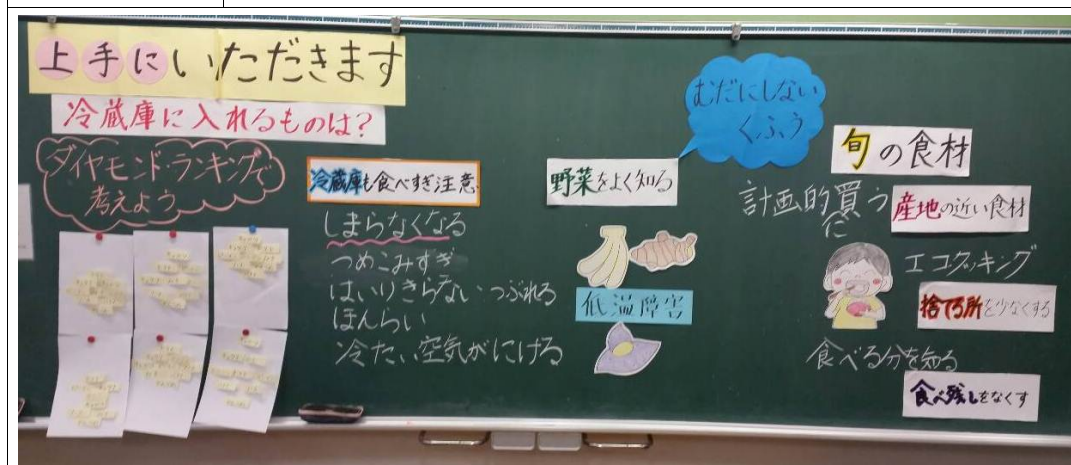 上手にいただきます
冷蔵庫に入れるものは?
ダイヤモンド・ランキングで
考えよう
冷蔵庫も食べすぎ注意
しまらなくなる
つめこみすぎ
はいりきらない つぶれる
ほんらい
冷たい空気がにげる
野菜をよく知る
低温障害
むだにしない
くふう
旬の食材
計画的に買う
産地の近い食材
エコクッキング
捨てる所を少なくする
食べる分を知る
食べ残しをなくす